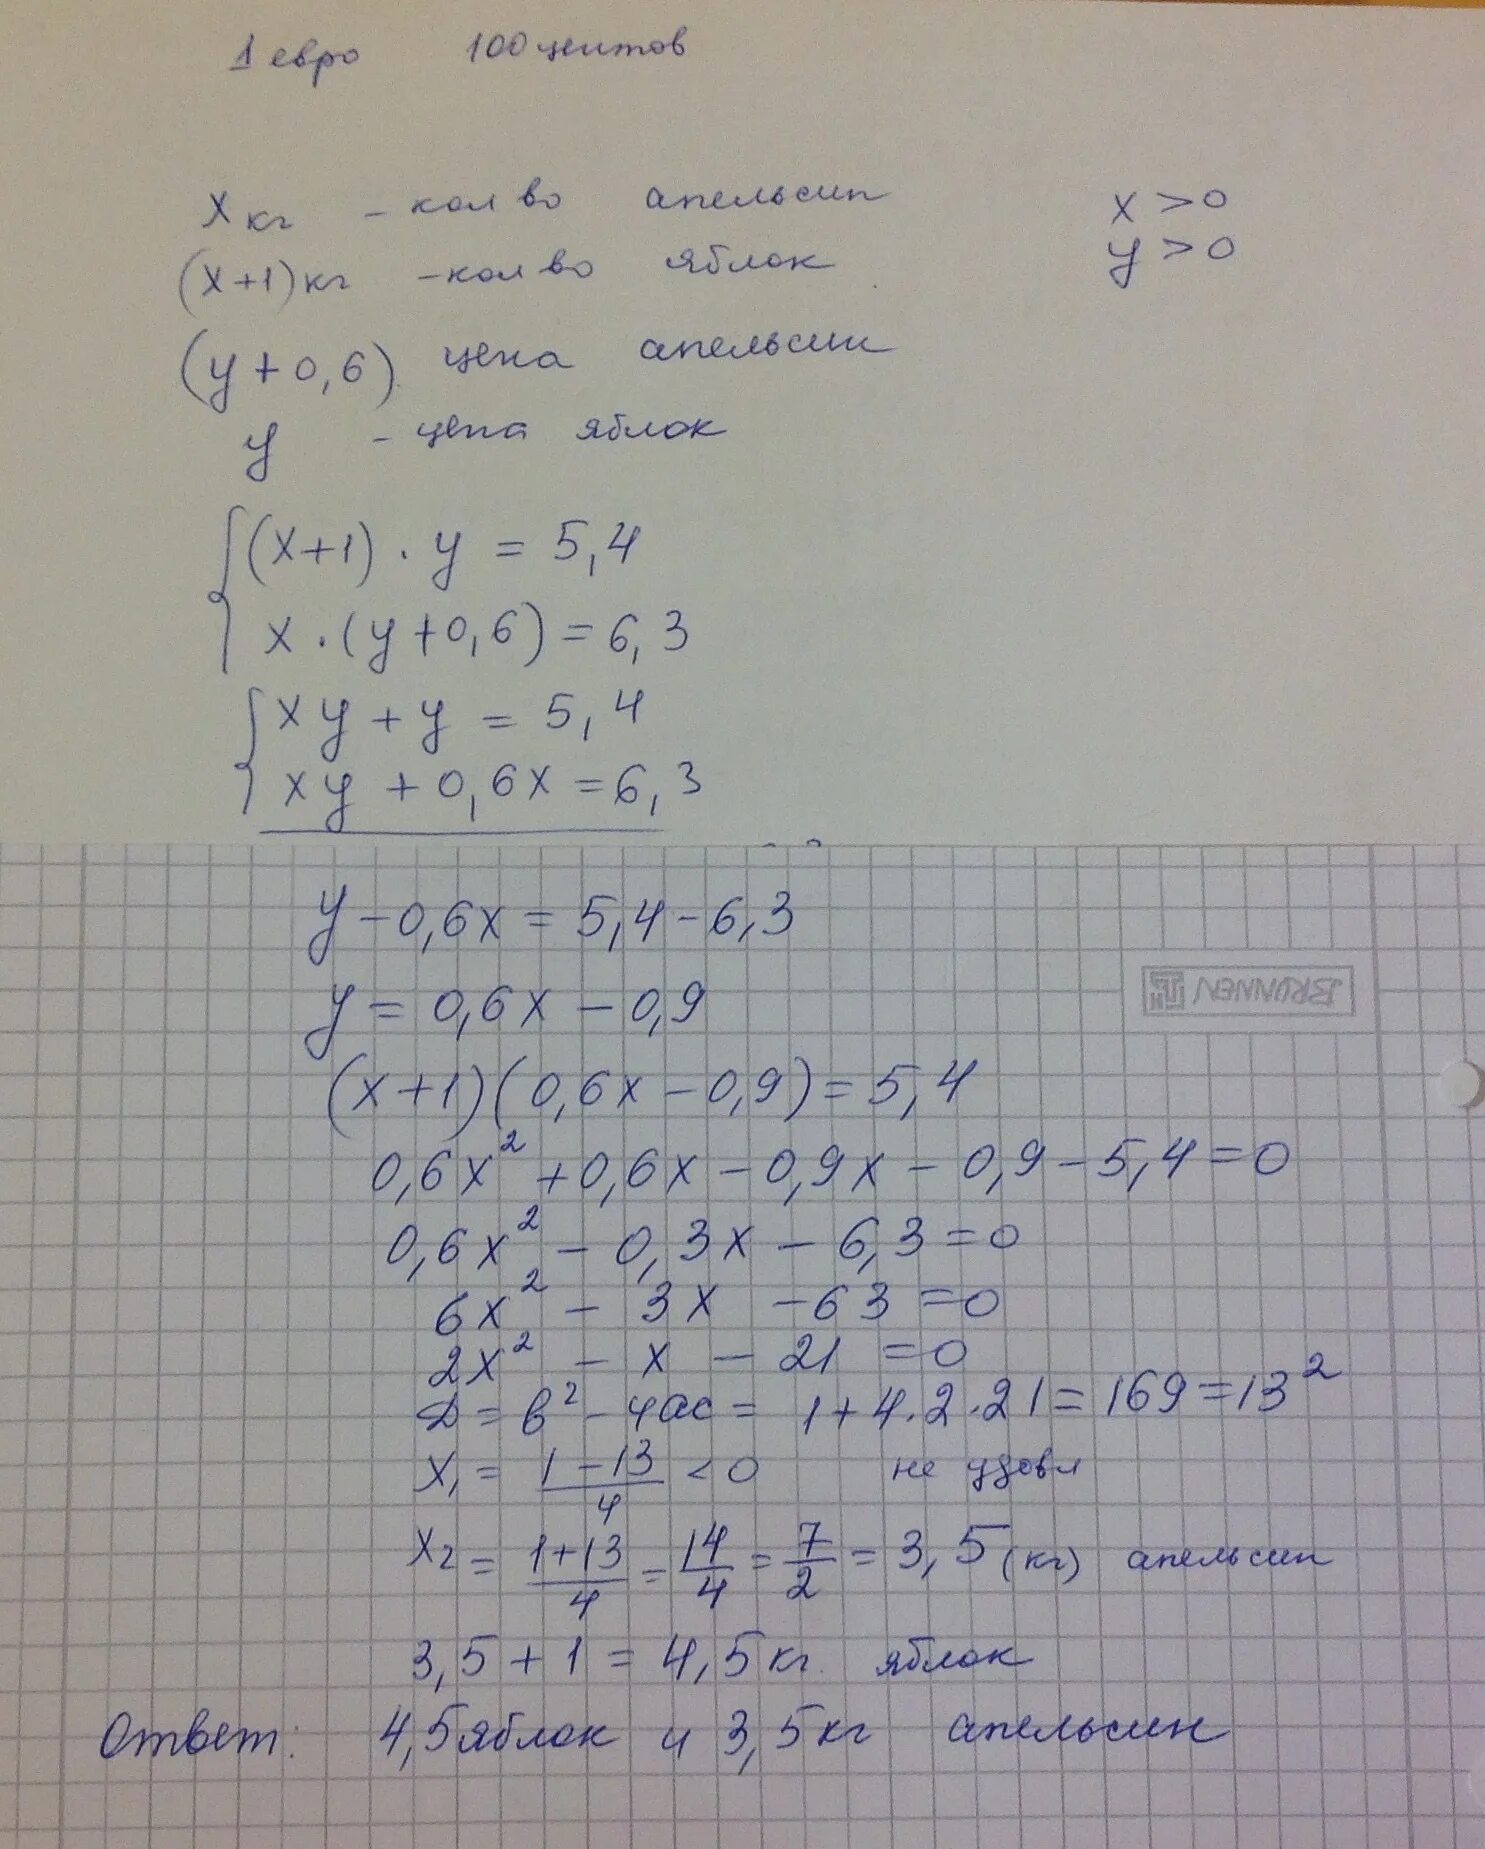 1 евро 100 центов
x кг - кол во апельсин x > 0
(x+1) кг - кол во яблок y > 0
(y + 0,6) цена апельсин
y - цена яблок
(x+1) · y = 5,4
x · (y+0,6) = 6,3
xy + y = 5,4
xy + 0,6x = 6,3
y - 0,6x = 5,4 - 6,3
y = 0,6x - 0,9
BRUNNEN
(x+1)(0,6x - 0,9) = 5,4
0,6x² + 0,6x - 0,9x - 0,9 - 5,4 = 0
0,6x² - 0,3x - 6,3 = 0
6x² - 3x - 63 = 0
2x² - x - 21 = 0
D = b² - 4ac = 1 + 4·2·21 = 169 = 13²
x₁ = (1-13)/4 < 0 не удовл
x₂ = (1+13)/4 = 14/4 = 7/2 = 3,5 (кг) апельсин
3,5 + 1 = 4,5 кг. яблок
Ответ: 4,5 яблок и 3,5 кг апельсин